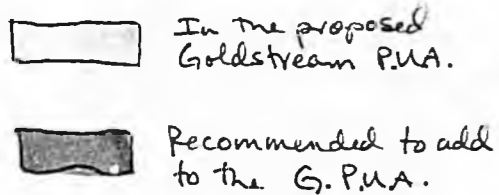 In the proposed
Goldstream P.U.A.
Recommended to add
to the G. P.U.A.